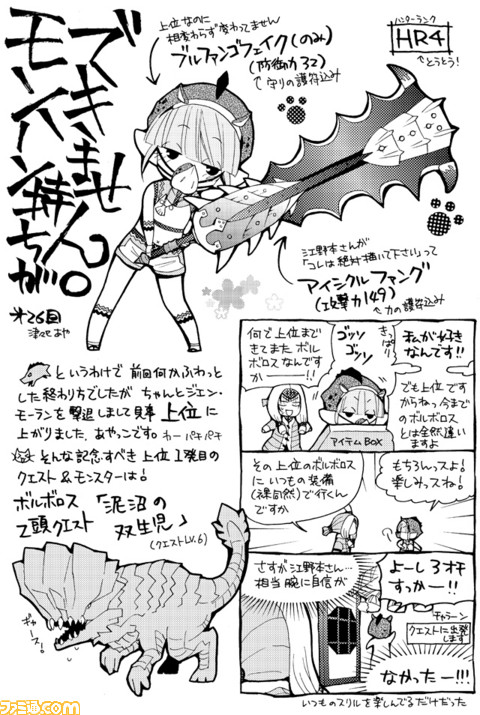 モンハン持ちが
できません。
第26回
津々巳あや
上位なのに
相変わらず変わってません
ブルファンゴフェイク(のみ)
(防御力32)
↑守りの護符込み
ハンターランク
HR4
↑とうとう!
江野本さんが
「コレは絶対描いて下さい」って
アイシクルファング
(攻撃力149)
↑力の護符込み
というわけで 前回何かふわっと
した終わり方でしたが ちゃんとジエン・
モーランを撃退しまして見事 上位に
上がりました、あやっこです。 わーパチパチ
そんな記念すべき上位1発目の
クエスト&モンスターは!
ボルボロス
2頭クエスト
「泥沼の
双生児」
(クエストLV.6)
ギャース!
私が好き
なんです!!
きっぱり
でも上位です
からねっ今まで
のボルボロス
とは全然違い
ますよ
何で上位まで
きてまたボル
ボロスなんです
かー!!
ゴッソ
ゴッソ
アイテムBOX
もちろんっスよ!
楽しみっスね!
その上位のボルボロス
にいつもの装備
(裸同然)で行くん
ですか
よーし3オチ
すっかー!!
さすが江野本さん…
相当腕に自信が
チャラーン
クエストに出発
します
なかったー!!!
いつものスリルを楽しんでるだけだった
ファミ通.com